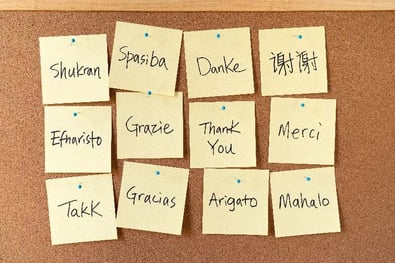 Shukran
Spasiba
Danke
谢谢
Efharisto
Grazie
Thank
You
Merci
Takk
Gracias
Arigato
Mahalo